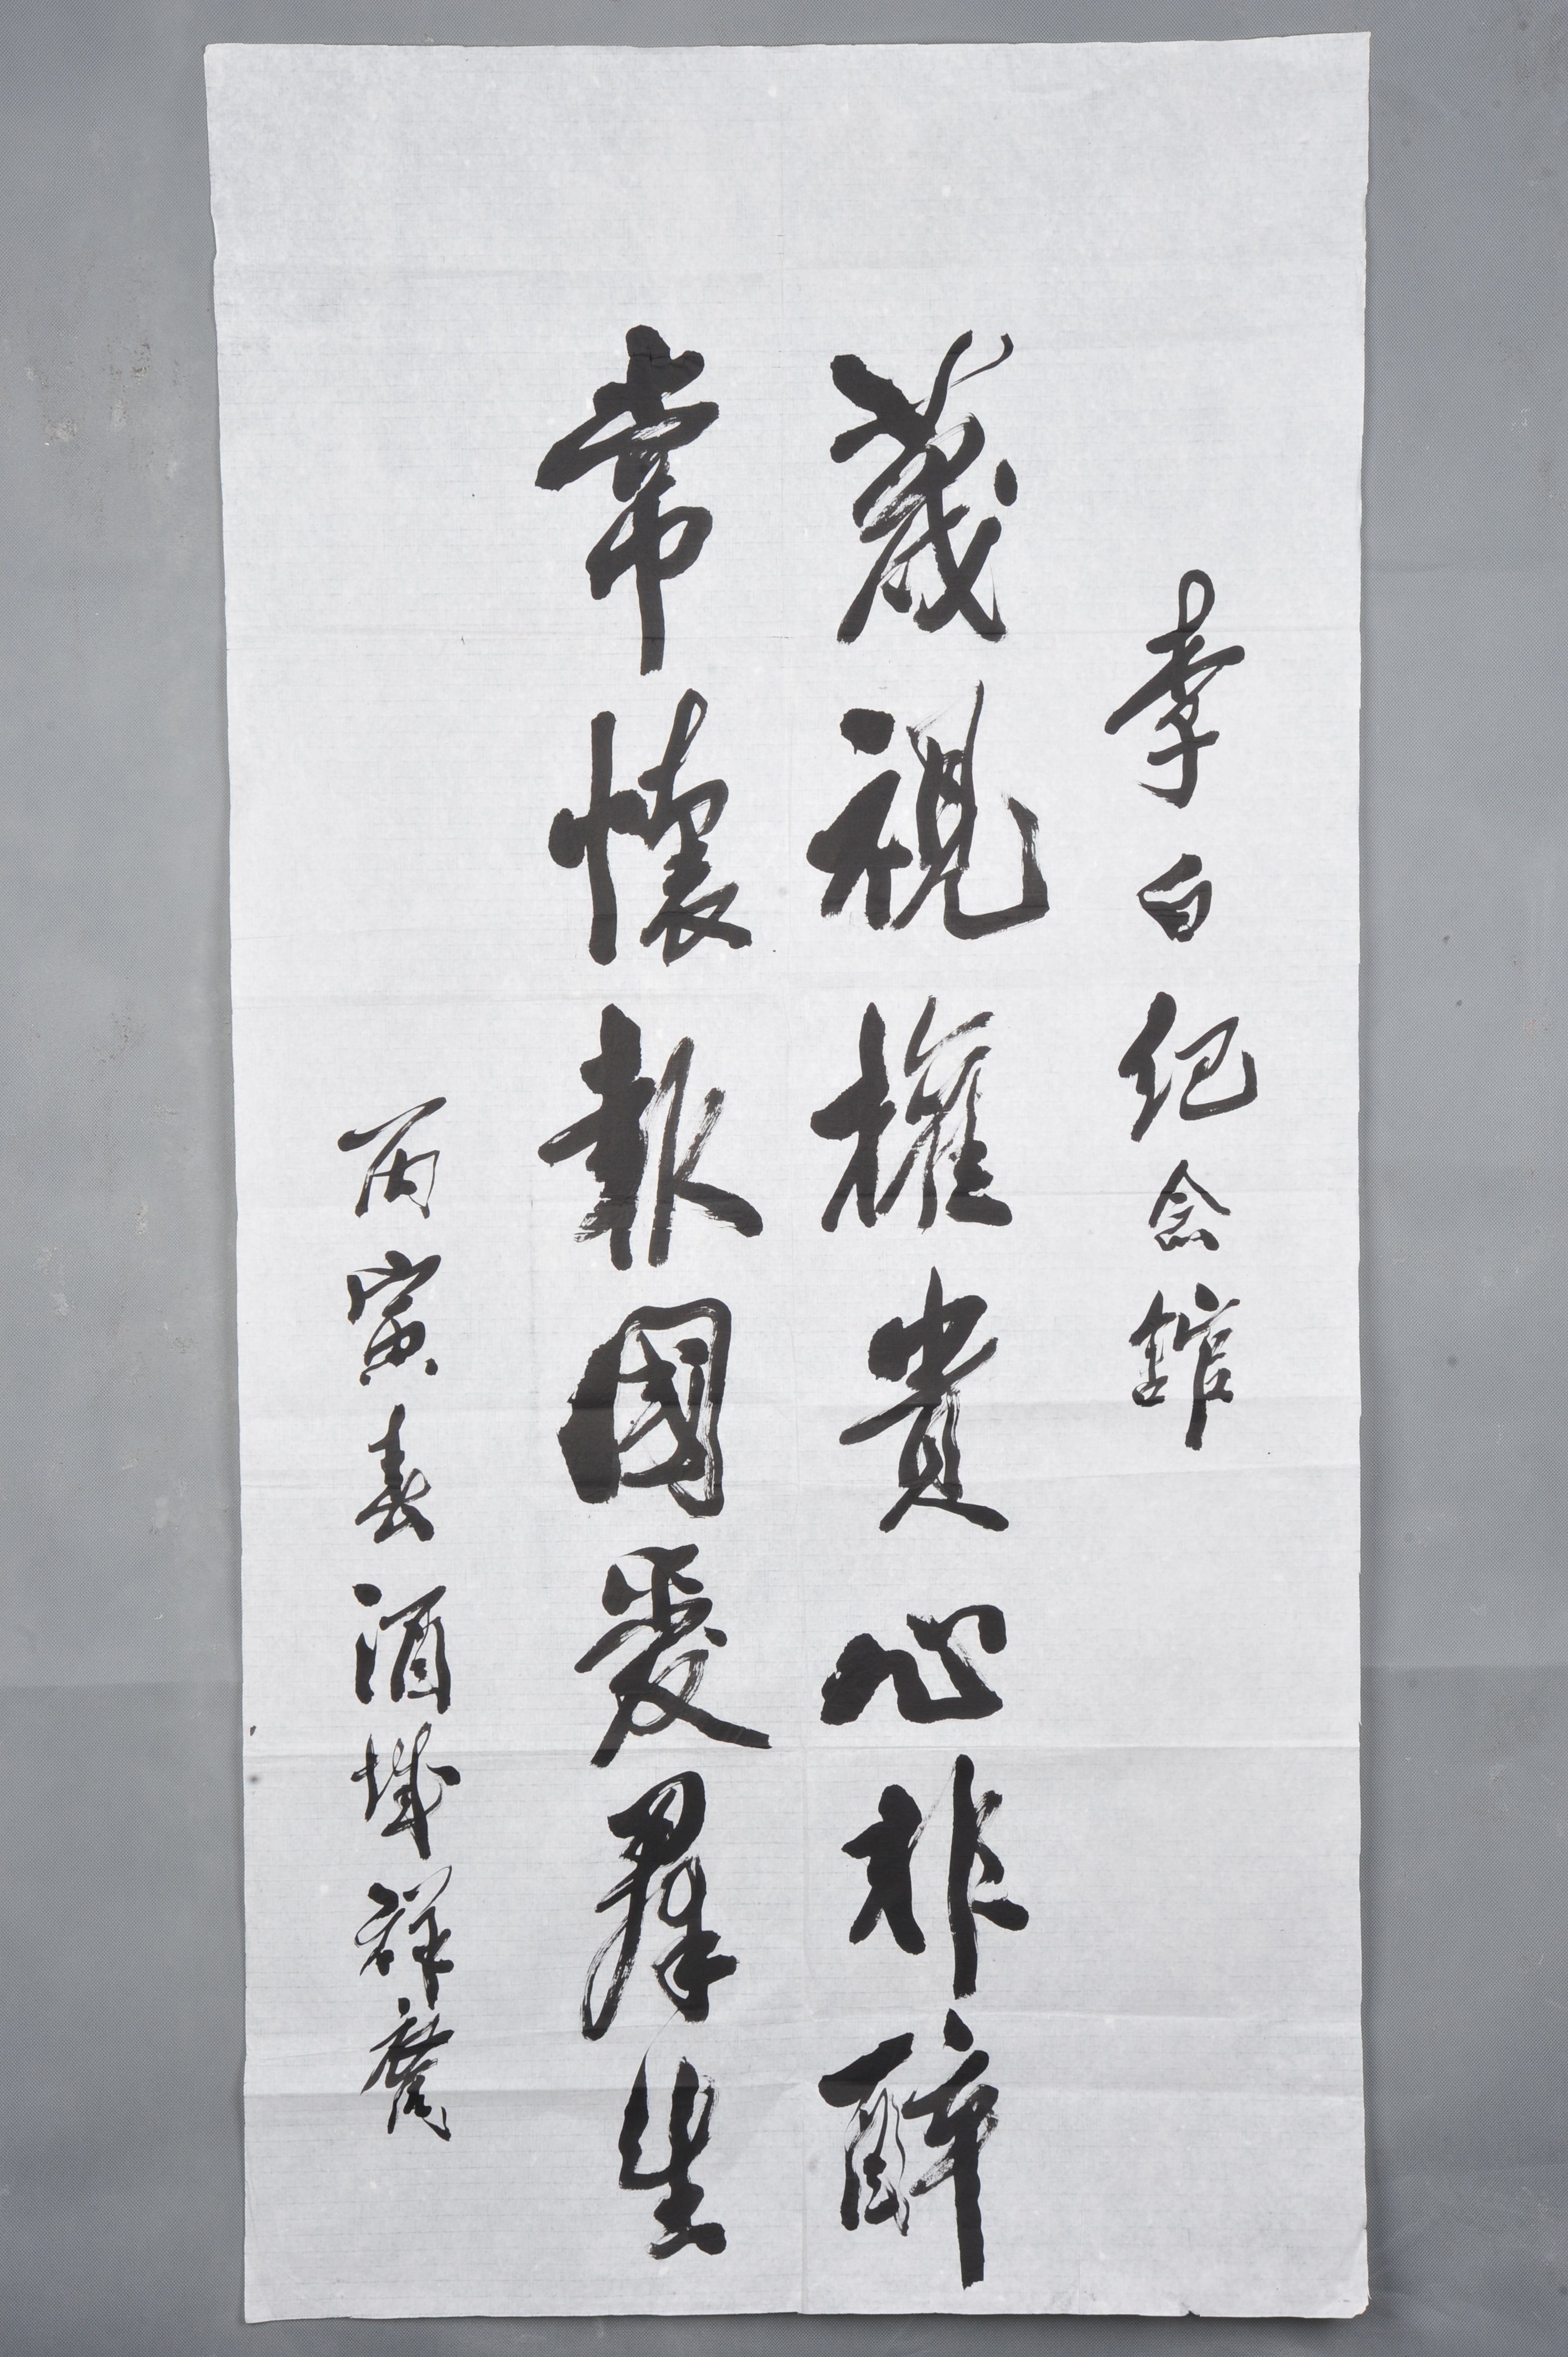 李白纪念館
蔑視權貴心非醉
常懷報國愛羣生
丙寅春酒城祥麐